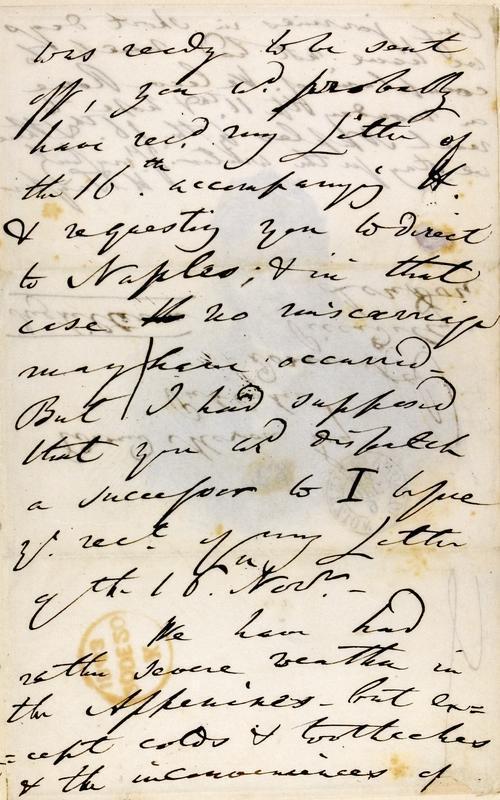 was ready to be sent
off, you wd. probably
have recd. my Letter of
the 16th accompanying H.
& requesting you to direct
to Naples; & in that
case no miscarriage
may have occurred-
But I had supposed
that you wd dispatch
a successor to I before
yr. rect. of my Letter
of the 16. Novr.-
We have had
rather severe weather in
the Appenines - but ex=
=cept colds & toothaches
& the inconveniences of